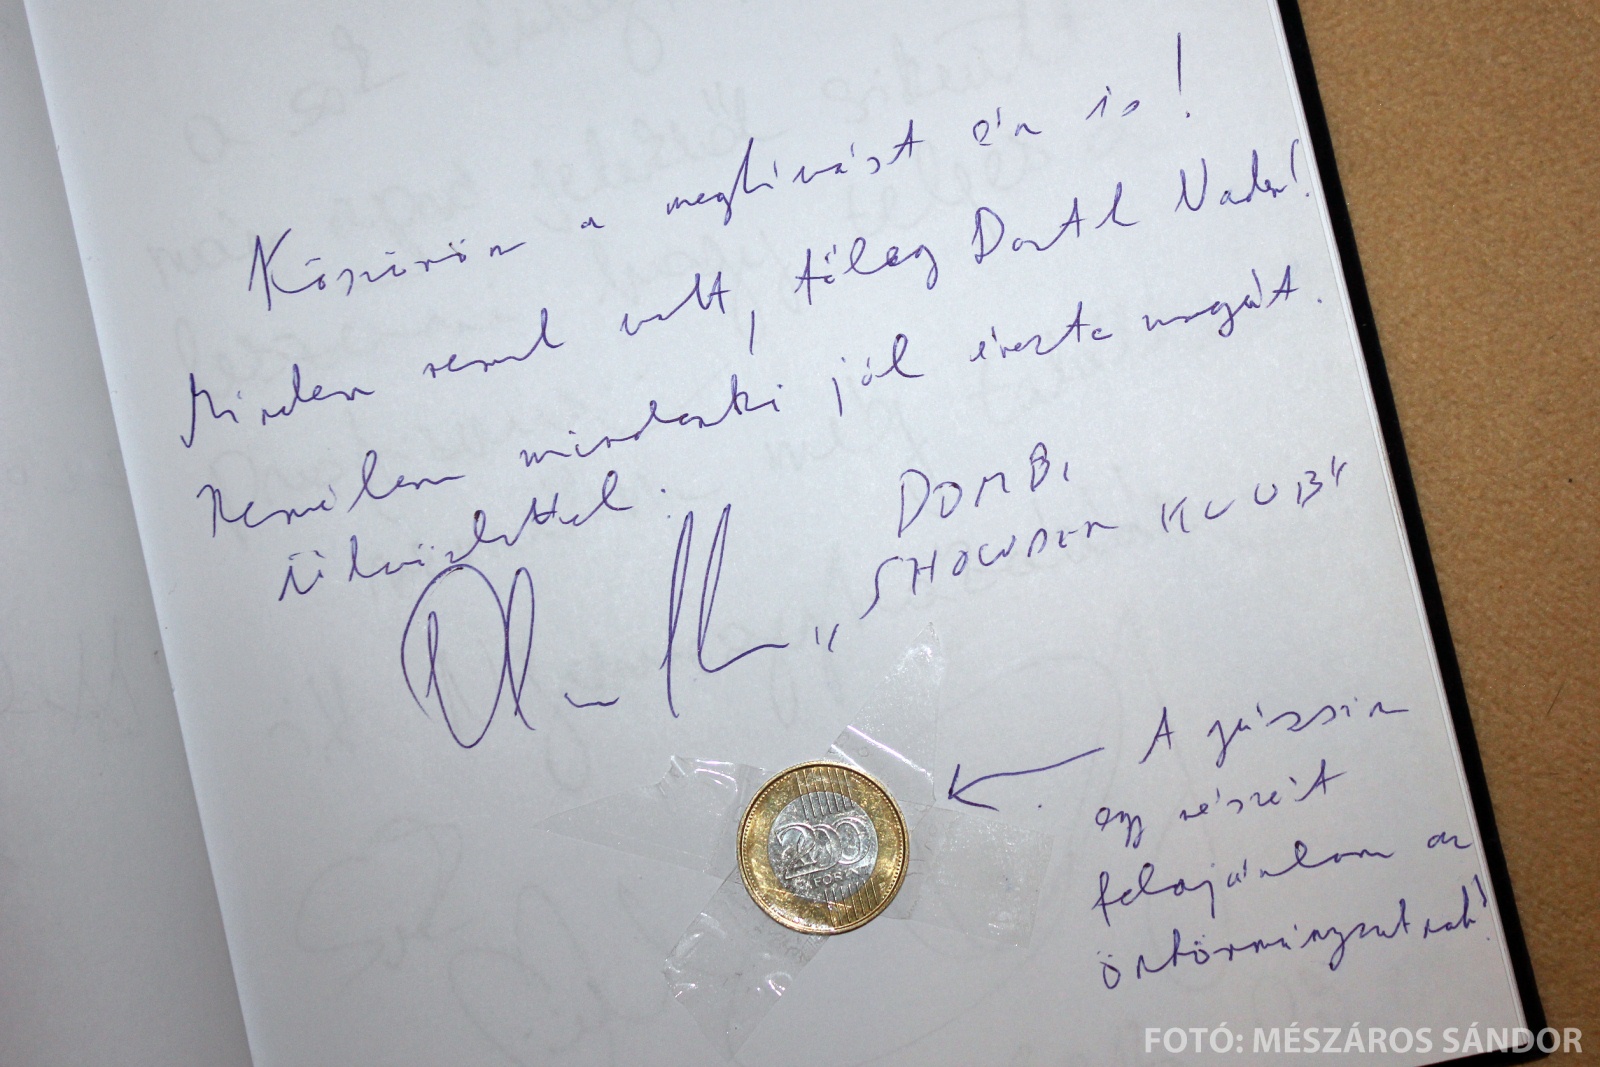 Köszönöm a meghívást én is!
Minden remek volt, főleg Dartl Nader!
Remélem mindenki jól érezte magát.
Üdvözlettel:
DOMBI
„SHOWDER KLUB"
A gázsim
egy részét
felajánlom az
önkormányzatnak!
200
FORINT
FOTÓ: MÉSZÁROS SÁNDOR